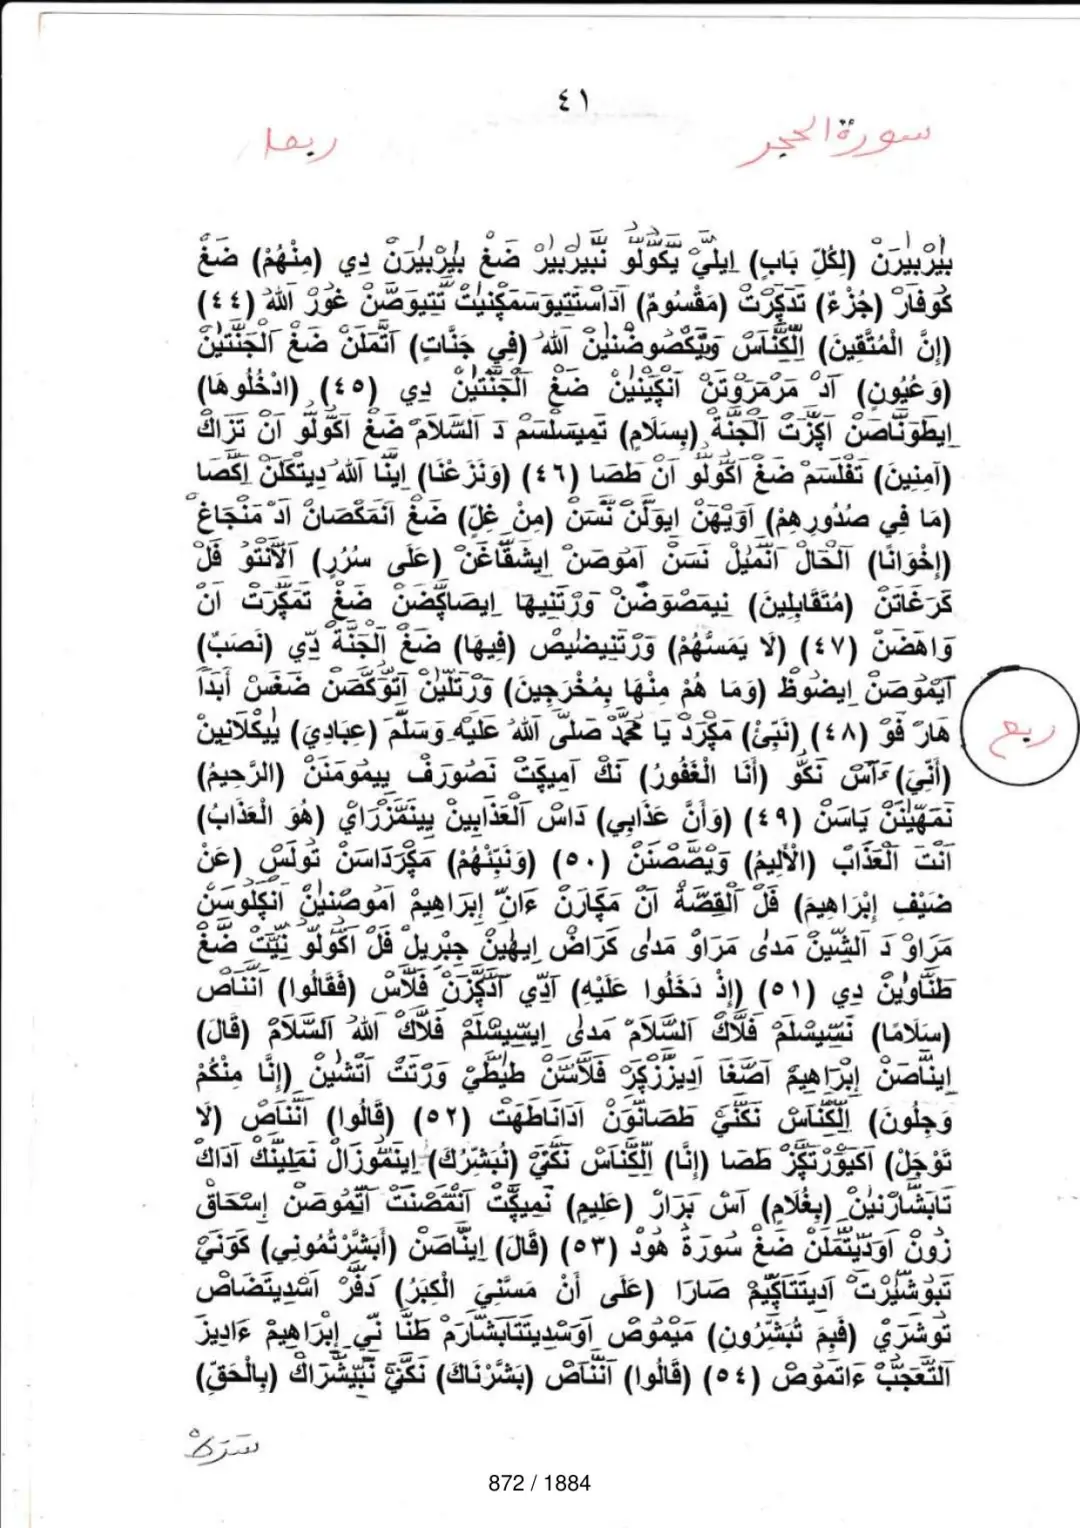 ٤١
سورة الحجر
ربعا
بيْرْبيرَنْ (لِكُلِّ بَابٍ) اِيلَيْ يَكُّولُو نَّبيرْبيرْ ضَغْ بيْرْبيرَنْ دِي (مِنْهُمْ) ضَغْ
كُوفَارْ (جُزْءٌ) تَدَكِرْتْ (مَقْسُومٌ) اللهْ (٤٤)
(إِنَّ الْمُتَّقِينَ) اللهْ (فِي جَنَّاتٍ) اَتَّمَلَنْ ضَغْ اَلْجَنَّتَيْنْ
(وَعُيُونٍ) اَدْ مَرْمَرَوْتَنْ اَنْكِينِينْ ضَغْ اَلْجَنَّتَيْنْ دِي (٤٥) (ادْخُلُوهَا)
اِيطَوْنَّاصَنْ اَكِزَتْ اَلْجَنَّةْ (بِسَلَامٍ) تَمِيسَلْسَمْ دَ اَلسَّلَامْ ضَغْ اَكُولَوْ اَنْ تَزَاكْ
(آمِنِينَ) تَفْلَسَمْ ضَغْ اَكُولَوْ اَنْ طَصَا (٤٦) (وَنَزَعْنَا) اِينَّا اللهْ دِيتَكَلَنْ اِكَّصَا
(مَا فِي صُدُورِهِمْ) اَوَيْهَنْ اِيوَلَّنْ نَّسَنْ (مِنْ غِلٍّ) ضَغْ اَنَمَكْصَانْ اَدْ مَنْجَاغْ
(إِخْوَانًا) اَلْحَالْ اَنَّمِيلْ نَسَنْ اَمُوصَنْ اِيشَقَّاغَنْ (عَلَى سُرُرٍ) اَلْاَنْتَوْ فَلْ
كَرَغَاتَنْ (مُتَقَابِلِينَ) نِيمَصْوَضَنْ وَرْتَنِيهَا اِيصَاكَضَنْ ضَغْ تَمَكِّرَتْ اَنْ
وَاهَضَنْ (٤٧) (لَا يَمَسُّهُمْ) وَرْتَنِيضِيصْ (فِيهَا) ضَغْ اَلْجَنَّةْ دِّي (نَصَبٌ)
اَيَمُوصَنْ اِيضُوظْ (وَمَا هُمْ مِنْهَا بِمُخْرَجِينَ) وَرْتَلَّيْنْ اَتَّوَكَصَنْ ضَغَسْ أَبَدَاً
هَارْ فَوْ (٤٨) (نَبِّئْ) مَكِرَدْ يَا مُحَمَّدْ صَلَّى اللهُ عَلَيْهِ وَسَلَّمَ (عِبَادِي) يِيكَلَانِينْ
(أَنِّي) ءَاَسْ نَكُّو (أَنَا الْغَفُورُ) نَكْ اَمِيكَتْ نَصُورَفْ يِيمُومَنَنْ (الرَّحِيمُ)
نَمَهَّيْنَنْ يَاسَنْ (٤٩) (وَأَنَّ عَذَابِي) دَاسْ اَلْعَذَابِينْ يِينَمَّزْرَايْ (هُوَ الْعَذَابُ)
اَنْتَ اَلْعَذَابْ (الْأَلِيمُ) وَيْصَّصَنَنْ (٥٠) (وَنَبِّئْهُمْ) مَكِرَدَاسَنْ تُولَسْ (عَنْ
ضَيْفِ إِبْرَاهِيمَ) فَلْ اَلْقِصَّةْ اَنْ مَكَارَنْ ءَانْ إِبْرَاهِيمْ اَمُوصَنِينْ اَنْكِلُوسَنْ
مَرَاوْ دَ اَلشَّيْنْ مَدىٰ مَرَاوْ مَدىٰ كَرَاضْ اِيهَيْنْ جِبْرِيلْ فَلْ اَكُولَوْ نِيَّتْ ضَغْ
طَنَّاوَيْنْ دِي (٥١) (إِذْ دَخَلُوا عَلَيْهِ) اَدِّي اَدَّكِزَنْ فَلَّاسْ (فَقَالُوا) اَنَّنَاصْ
(سَلَامًا) نَسِّيسْلَمْ فَلَّاكْ اَلسَّلَامْ مَدىٰ اِيسِّيسْلَمْ فَلَّاكْ اللهْ اَلسَّلَامْ (قَالَ)
اِينَّاصَنْ إِبْرَاهِيمْ اَصَغَا فَلَّاسَنْ طِيطَّيْ وَرْتَتْ اَتْشَيْنْ (إِنَّا مِنْكُمْ
وَجِلُونَ) اِلْكَنَّاسْ نَكَّنَيْ طَصَانَوْنْ اَدَانَاطَهَتْ (٥٢) (قَالُوا) اَنَّنَاصْ (لَا
تَوْجَلْ) طَصَا (إِنَّا) اِلْكَنَّاسْ نَكَّيْ (نُبَشِّرُكَ) اِينَمُّوزَالْ نَمَلِينَكْ اَدَاكْ
تَابَشَّارْنِينْ (بِغُلَامٍ) اَسْ بَرَارْ (عَلِيمٍ) نَمِيكَتْ اَنْتَصْنَتْ اَتَّمُوصَنْ إِسْحَاقْ
زُونْ اَوَدِيتَّمَلَنْ ضَغْ سُورَةْ هُودْ (٥٣) (قَالَ) اِينَّاصَنْ (أَبَشَّرْتُمُونِي) كَوَنَيْ
تَبُوشَّيْرْتْ صَارَا (عَلَى أَنْ مَسَّنِيَ الْكِبَرُ) دَفَّرْ اَشْدِيتَضَاصْ
تُوشَرَيْ (فَبِمَ تُبَشِّرُونَ) مَيْمُوصْ اَوَسْدِيتَتَابَشَّارَمْ طَنَّا نِّي إِبْرَاهِيمْ ءَادِيزْ
اَلتَّعَجُّبْ ءَاتَمُوصْ (٥٤) (قَالُوا) اَنَّنَاصْ (بَشَّرْنَاكَ) نَكَّيْ نَبِّيشَّرَاكْ (بِالْحَقِّ)
ربع
872 / 1884